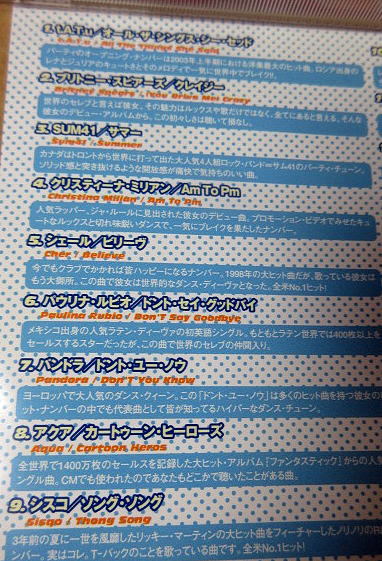 1. t.A.T.u/オール・ザ・シングス・シー・セッド
t.A.T.u / All The Things She Said
パーティのオープニング・ナンバーは2003年上半期における洋楽最大のヒット曲。ロシア出身の
レナとジュリアのキュートさとそのメロディで一気に世界中でブレイク!!
2. ブリトニー・スピアーズ/クレイジー
Britney Spears / (You Drive Me) Crazy
世界のセレブと言えば彼女。その魅力はルックスや歌だけではなく、全てにあると言える。そんな
彼女のデビュー・アルバムから、この初々しさは聴いて損なし。
3. SUM41/サマー
Sum41 / Summer
カナダはトロントから世界に打って出た大人気4人組ロック・バンドーサム41のパーティ・チューン。
ソリッド感と突き抜けるような開放感が痛快で気持ちのいい曲。
4. クリスティーナ・ミリアン/Am To Pm
Christina Milian / Am To Pm
人気ラッパー、ジャ・ルールに見出された彼女のデビュー曲。プロモーション・ビデオでみせたキュー
トなルックスと切れ味鋭いダンスで、一気にブレイクを果たしたナンバー。
5. シェール/ビリーヴ
Cher / Believe
今でもクラブでかかれば皆ハッピーになるナンバー。1998年の大ヒット曲だが、歌っている彼女は
もう大御所。この曲で彼女は世界的なダンス・ディーヴァとなった。全米No.1ヒット!
6. パウリナ・ルビオ/ドント・セイ・グッドバイ
Paulina Rubio / Don'T Say Goodbye
メキシコ出身の人気ラテン・ディーヴァの初英語シングル。もともとラテン世界では400枚以上を
セールスするスターだったが、この曲で世界のセレブの仲間入り。
7. パンドラ/ドント・ユー・ノウ
Pandora / Don'T You Know
ヨーロッパで大人気のダンス・クィーン。この「ドント・ユー・ノウ」は多くのヒット曲を持つ彼女の
ット・ナンバーの中でも代表曲として皆が知ってるハイパーなダンス・チューン。
8. アクア/カートゥーン・ヒーローズ
Aqua / Cartoon Heros
全世界で1400万枚のセールスを記録した大ヒット・アルバム『ファンタスティック』からの人気
ングル曲。CMでも使われたのであなたもどこかで聴いたことがある曲。
9. シスコ/ソング・ソング
Sisqo / Thong Song
3年前の夏に一世を風靡したリッキー・マーティンの大ヒット曲をフィーチャーしたノリノリの
ンバー。実はコレ。T-バックのことを歌っている曲です。全米No.1ヒット!